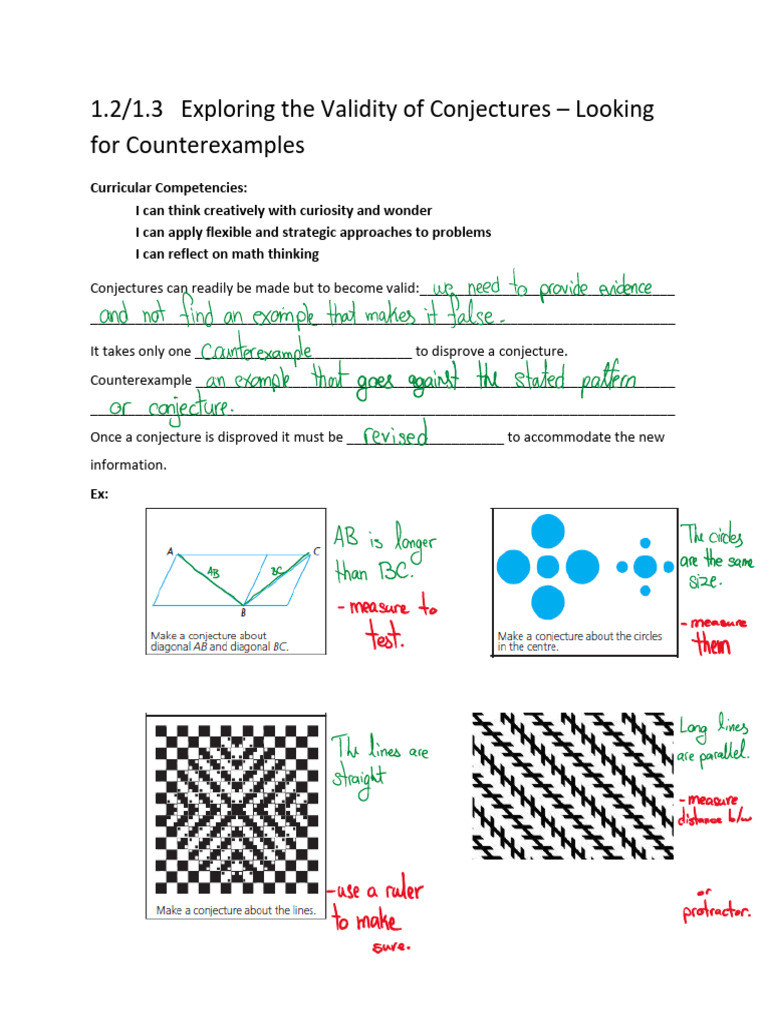 1.2/1.3 Exploring the Validity of Conjectures – Looking
for Counterexamples
Curricular Competencies:
I can think creatively with curiosity and wonder
I can apply flexible and strategic approaches to problems
I can reflect on math thinking
Conjectures can readily be made but to become valid: we need to provide evidence
and not find an example that makes it false.
It takes only one counterexample to disprove a conjecture.
Counterexample an example that goes against the stated pattern
or conjecture.
Once a conjecture is disproved it must be revised to accommodate the new
information.
Ex:
A
C
AB
BC
B
Make a conjecture about
diagonal AB and diagonal BC.
AB is longer
than BC.
- measure to
test.
Make a conjecture about the circles
in the centre.
The circles
are the same
size.
- measure
them
Make a conjecture about the lines.
The lines are
straight
- use a ruler
to make
sure.
Long lines
are parallel.
- measure
distance b/w
or
protractor.